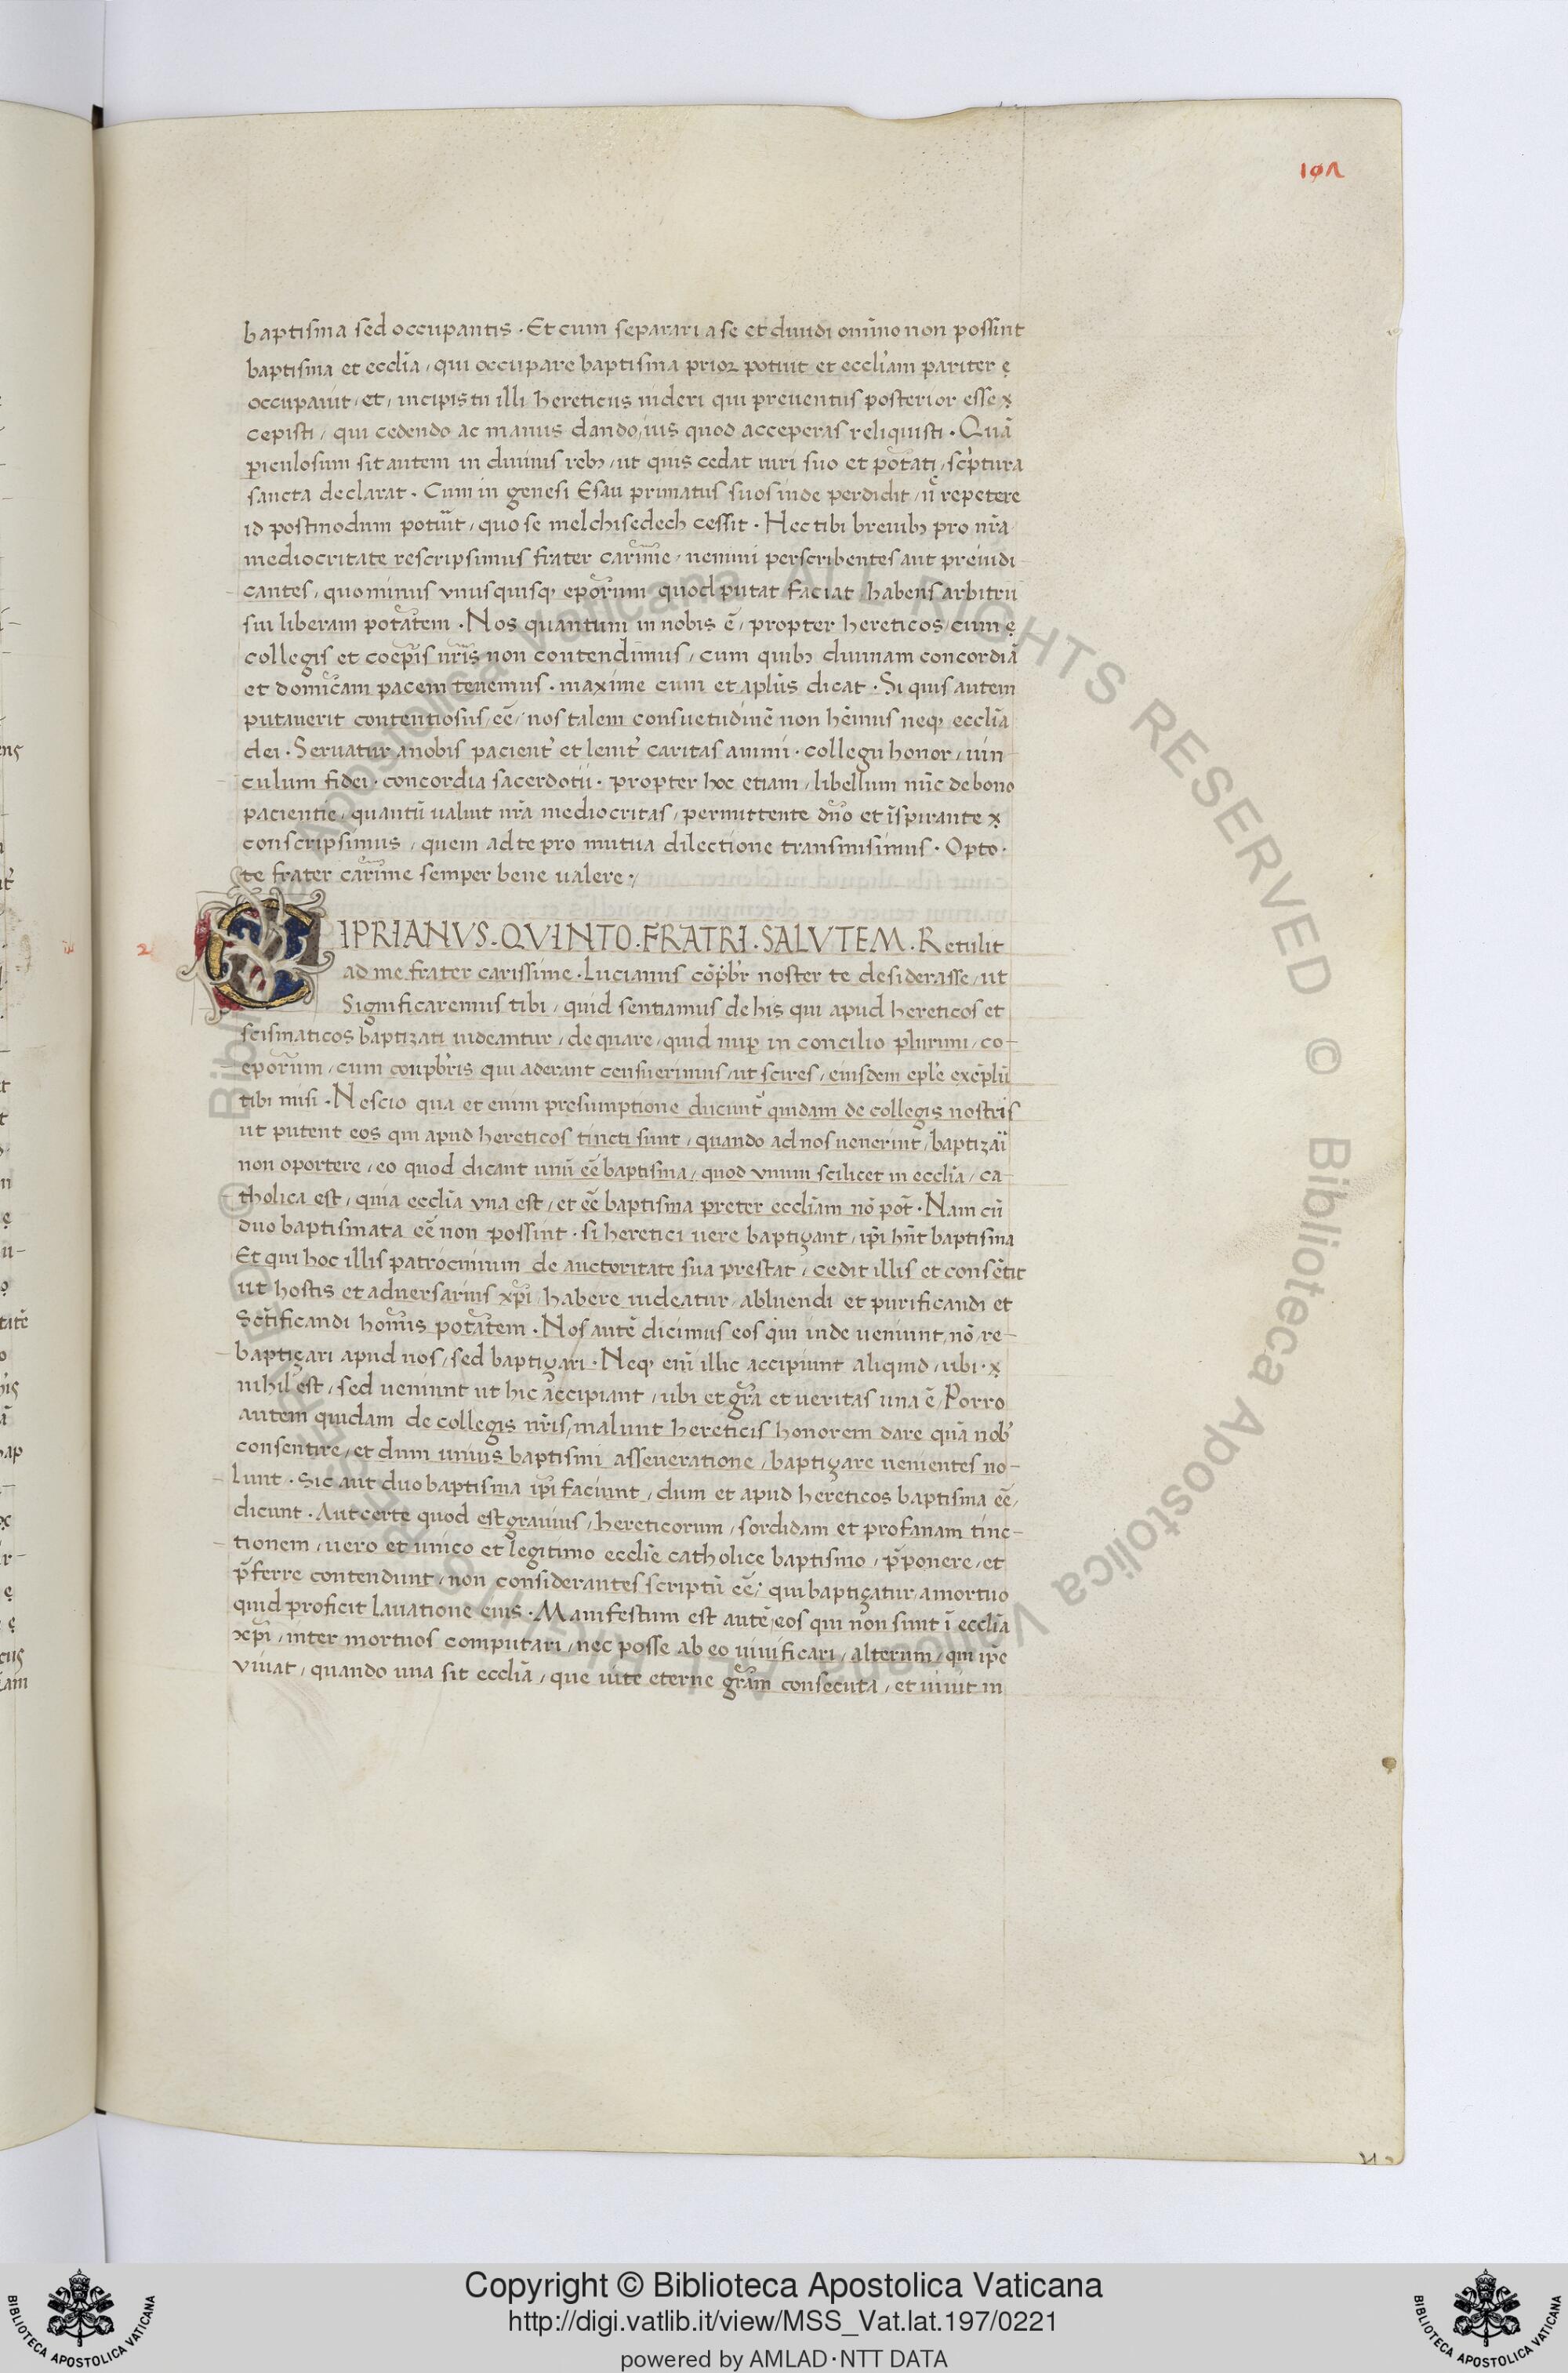 101
baptisma sed occupantis · Et cum separari a se et diuidi om̄ino non possint
baptisma et eccl̄ia / qui occupare baptisma prior potuit et eccl̄iam pariter ę
occupauit / et / incipis tu illi hereticus uideri qui preuentus posterior esse x
cepisti / qui cedendo ac manus dando / ius quod acceperas reliquisti · Quā
ꝑiculosum sit autem in diuinis rebꝫ / ut quis cedat iuri suo et potati / scp̄tura
sancta declarat · Cum in genesi Esau primatus suos inde perdidit / n̄ repetere
id postmodum potuit / quo se melchisedech cessit · Hec tibi breuibꝫ pro nr̄a
mediocritate rescripsimus frater carim̄e / nemini perscribentes aut preiudi
cantes / quominus vnusquisqꝫ epōrum quod putat faciat / habens arbitrii
sui liberam potātem · Nos quantum in nobis ē / propter hereticos / cum ę
collegis et coep̄is nr̄is non contendimus / cum quibꝫ diuinam concordiā
et domīcam pacem tenemus · maxime cum et apl̄us dicat · Si quis autem
putauerit contentiosus / eē / nos talem consuetudinē non hēmus neqꝫ eccl̄ia
dei · Seruatur a nobis pacient̄ et lenit̄ caritas animi · collegii honor / uin-
culum fidei · concordia sacerdotii · propter hoc etiam / libellum nūc de bono
pacientie / quantū ualuit nr̄a mediocritas / permittente dn̄o et īspirante x
conscripsimus / quem ad te pro mutua dilectione transmisimus · Opto ·
te frater carim̄e semper bene ualere ·/
CIPRIANVS · QVINTO · FRATRI · SALVTEM · Retulit
ad me frater carissime · Lucianus cōpb̄r noster te desiderasse / ut
Significaremus tibi / quid sentiamus de his qui apud hereticos et
scismaticos baptizati uideantur / de qua re / quid nuꝑ in concilio plurimi / co-
epōrum / cum conpb̄ris qui aderant censuerimus / ut scires / eiusdem epl̄e exēplū
tibi misi · Nescio qua et enim presumptione ducunt̄ quidam de collegis nostris
ut putent eos qui apud hereticos tincti sunt / quando ad nos uenerint / baptizāi
non oportere / eo quod dicant unū eē baptisma / quod vnum scilicet in eccl̄ia / ca-
tholica est / quia eccl̄ia vna est / et eē baptisma preter eccl̄iam nō pot̄ · Nam cū
duo baptismata eē non possint · si heretici uere baptizant / ip̄i hn̄t baptisma
Et qui hoc illis patrocinium de auctoritate sua prestat / cedit illis et consētit
ut hostis et aduersarius xp̄i habere uideatur / abluendi et purificandi et
Sct̄ificandi hom̄is potātem · Nos autē dicimus eos qui inde ueniunt / nō re-
baptizari apud nos / sed baptizari · Neqꝫ enī illic accipiunt aliquid / ubi · x
nihil est / sed ueniunt ut hic accipiant / ubi et gr̄a et ueritas una ē / Porro
autem quidam de collegis nr̄is / malunt hereticis honorem dare quā nob̄
consentire / et dum unius baptismi asseueratione / baptizare uenientes no-
lunt · Sic aut duo baptisma ip̄i faciunt / dum et apud hereticos baptisma eē /
dicunt · Aut certe quod est grauius / hereticorum / sordidam et profanam tinc-
tionem / uero et unico et legitimo eccl̄ie catholice baptismo / p̄ponere / et
p̄ferre contendunt / non considerantes scriptū eē / qui baptizatur a mortuo
quid proficit lauatione eius · Manifestum est autē / eos qui non sunt ī eccl̄ia
xp̄i / inter mortuos computari / nec posse ab eo uiuificari / alterum / qui ip̄e
viuat / quando una sit eccl̄ia / que uite eterne gr̄am consecuta / et uiuit in
Copyright © Biblioteca Apostolica Vaticana
http://digi.vatlib.it/view/MSS_Vat.lat.197/0221
powered by AMLAD·NTT DATA